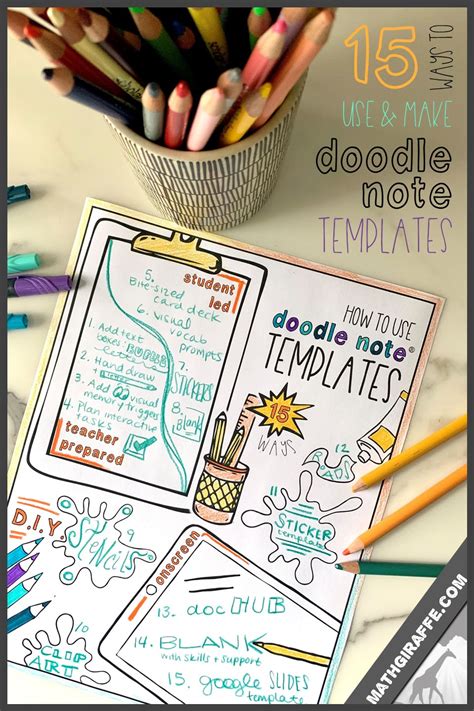 15 WAYS TO
USE & MAKE
doodle
note
TEMPLATES
HOW TO USE
doodle note®
TEMPLATES
15
WAYS
student
led
5. Bite-sized
card deck
6. visual
vocab
prompts
7. STICKERS
8. Blank
1. Add text
boxes: BUBBLE
letters
2. Hand draw
+
3. Add visual
memory triggers
4. Plan interactive
tasks
teacher
prepared
D.I.Y.
9
Stencils
10
CLIP
ART
11
STICKER
template
12
onscreen
13. doc HUB
14. BLANK
with skills + support
15. google SLIDES
template
MATHGIRAFFE.COM